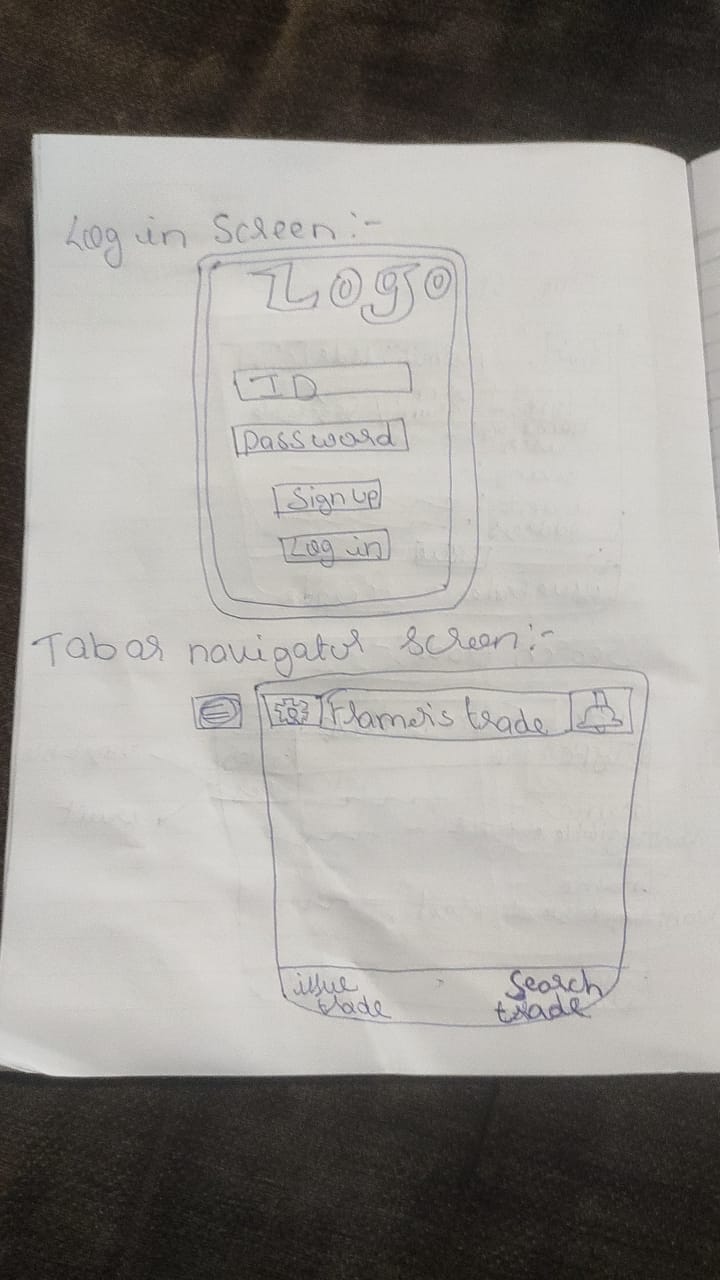 Log in Screen:-
Logo
ID
Password
Sign up
Log in
Tabar navigator screen:-
trade
issue
trade
Search
trade